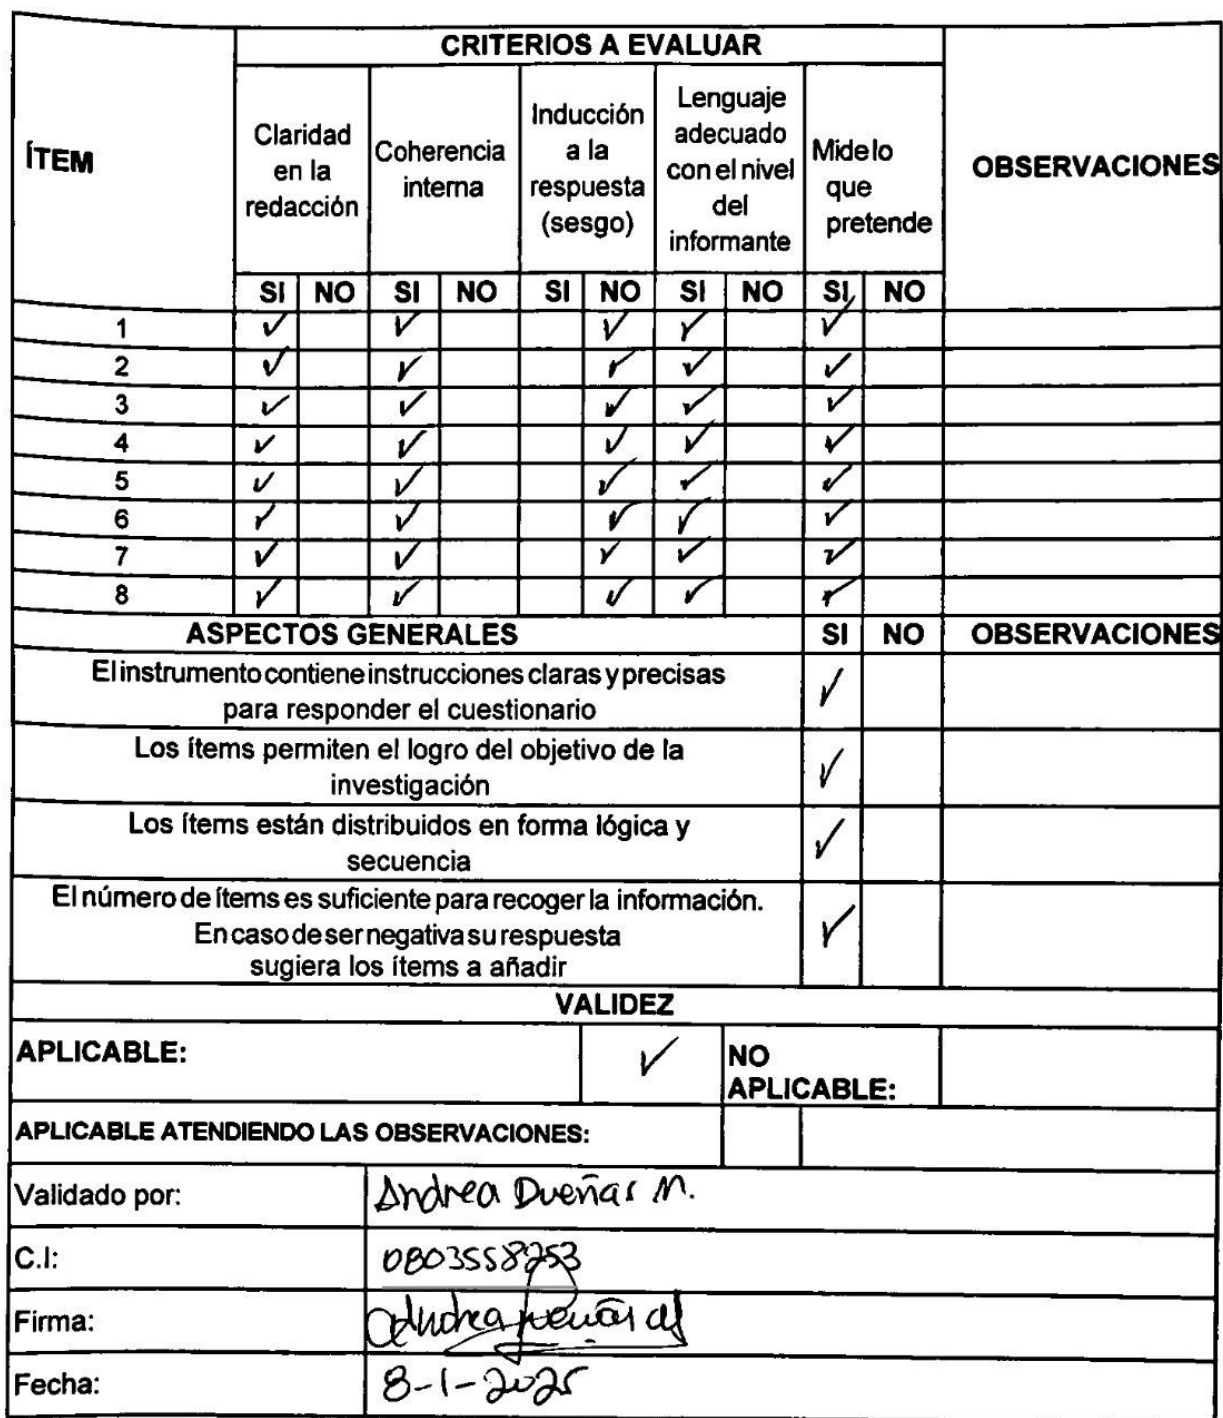 CRITERIOS A EVALUAR
ÍTEM
Claridad
en la
redacción
Coherencia
interna
Inducción
a la
respuesta
(sesgo)
Lenguaje
adecuado
con el nivel
del
informante
Mide lo
que
pretende
OBSERVACIONES
SI NO SI NO SI NO SI NO SI NO
1 ✓ ✓ ✓ ✓ ✓
2 ✓ ✓ ✓ ✓ ✓
3 ✓ ✓ ✓ ✓ ✓
4 ✓ ✓ ✓ ✓ ✓
5 ✓ ✓ ✓ ✓ ✓
6 ✓ ✓ ✓ ✓ ✓
7 ✓ ✓ ✓ ✓ ✓
8 ✓ ✓ ✓ ✓ ✓
ASPECTOS GENERALES SI NO OBSERVACIONES
El instrumento contiene instrucciones claras y precisas
para responder el cuestionario ✓
Los ítems permiten el logro del objetivo de la
investigación ✓
Los ítems están distribuidos en forma lógica y
secuencia ✓
El número de ítems es suficiente para recoger la información.
En caso de ser negativa su respuesta ✓
sugiera los ítems a añadir
VALIDEZ
APLICABLE: ✓ NO
APLICABLE:
APLICABLE ATENDIENDO LAS OBSERVACIONES:
Validado por: Andrea Dueñas M.
C.I: 0803558253
Firma:
Fecha: 8-1-2025